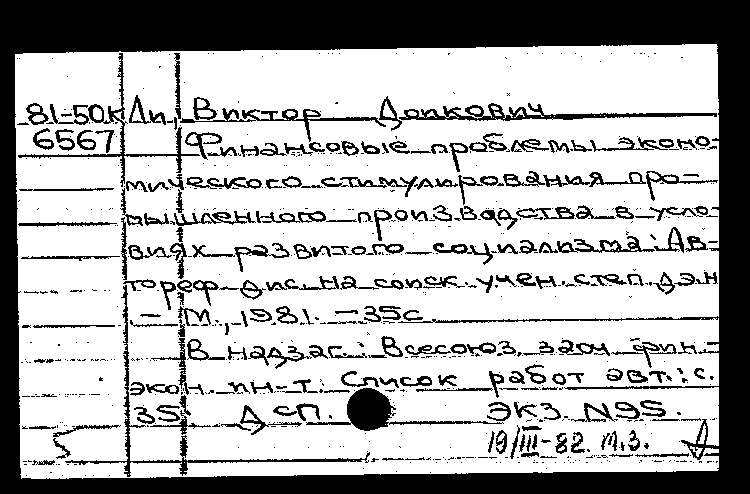 81-50к Ли, Виктор Допкович
6567 Финансовые проблемы эконо-
мического стимулирования про-
мышленного производства в усло-
виях развитого социализма: Ав-
тореф дис. на соиск. учен. степ. д.э.н
.- М., 1981. - 35с.
В надзаг.: Всесоюз. заоч. фин.-
экон. ин-т. Список работ авт.: с.
35. ДСП. ЭКЗ. N95.
19/III-82. М.З.